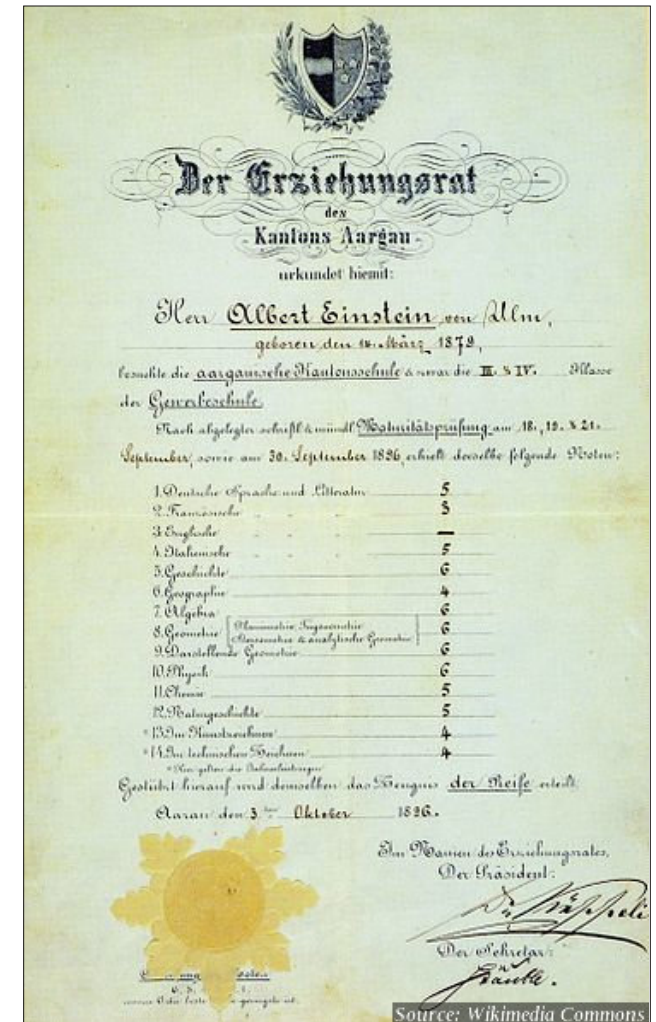 Der Erziehungsrat
des
Kantons Aargau
urkundet hiemit:
Herr Albert Einstein von Ulm,
geboren den 14. März 1879,
besuchte die aargauische Kantonsschule & zwar die III. & IV. Klasse
der Gewerbeschule.
Nach abgelegter schriftl. & mündl. Maturitätsprüfung am 18., 19. & 21.
September, sowie am 30. September 1896, erhielt derselbe folgende Noten:
1. Deutsche Sprache und Litteratur 5
2. Französische " " " 3
3. Englische " " " —
4. Italienische " " " 5
5. Geschichte 6
6. Geographie 4
7. Algebra 6
8. Geometrie Planimetrie, Trigonometrie 6
Stereometrie & analytische Geometrie
9. Darstellende Geometrie 6
10. Physik 6
11. Chemie 5
12. Naturgeschichte 5
*13. Im Kunstzeichnen 4
*14. Im technischen Zeichnen 4
* Hier gelten die Jahresleistungen.
Gestützt hierauf wird demselben das Zeugnis der Reife erteilt.
Aarau den 3. ten Oktober 1896.
Im Namen des Erziehungsrates,
Der Präsident:
Der Sekretär:
Source: Wikimedia Commons